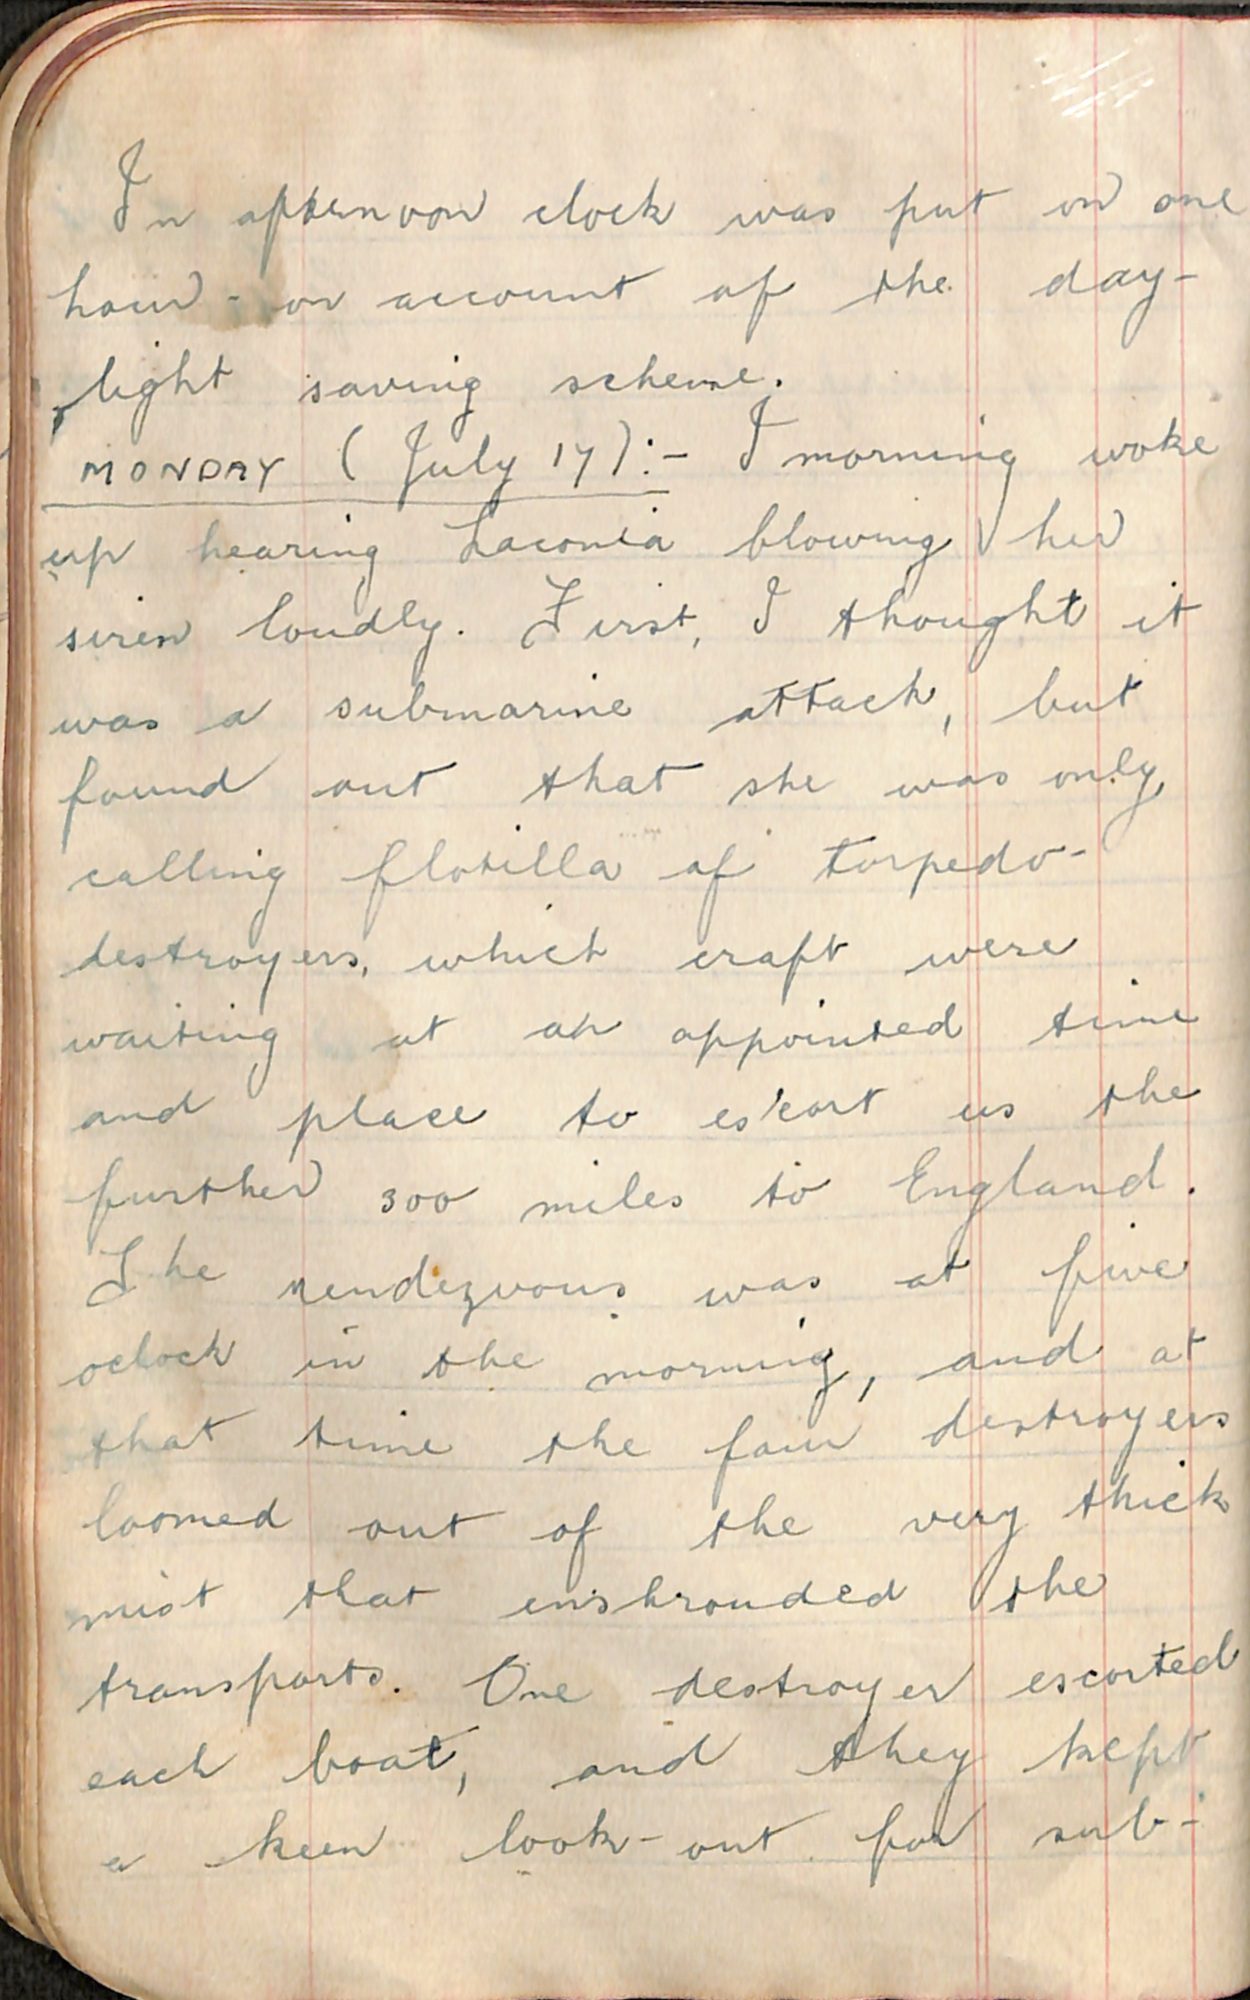 In afternoon clock was put on one
hour - on account of the day-
light saving scheme.
MONDAY (July 17):- I morning woke
up hearing Laconia blowing her
siren loudly. First, I thought it
was a submarine attack, but
found out that she was only
calling flotilla of torpedo-
destroyers, which craft were
waiting at an appointed time
and place to escort us the
further 300 miles to England.
The rendezvous was at five
oclock in the morning, and at
that time the four destroyers
loomed out of the very thick
mist that enshrouded the
transports. One destroyer escorted
each boat, and they kept
a keen look-out for sub-